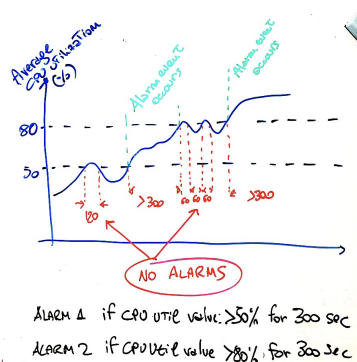 Average
CPU utilization
(%)
Alarm event
occurs
Alarm event
occurs
80
50
120
>300
60 60 60
>300
NO ALARMS
ALARM 1 if CPU util value >50% for 300 sec
ALARM 2 if CPU Util value >80% for 300 sec